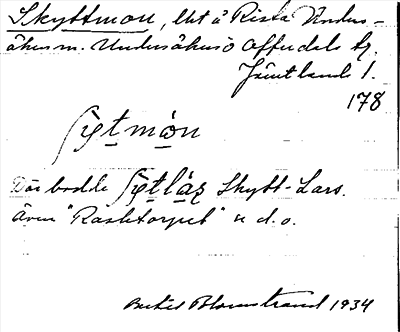 Skyttmon, lht å Rista Unders-
åkers sn. Undersåkers o Offerdals tg.
Jämtlands l.
178
ʃy̨tmòn
Där bodde ʃy̨tláʂ Skytt-Lars.
även "Rasktorpet" u.d.o.
Bertil Blomstrand 1934